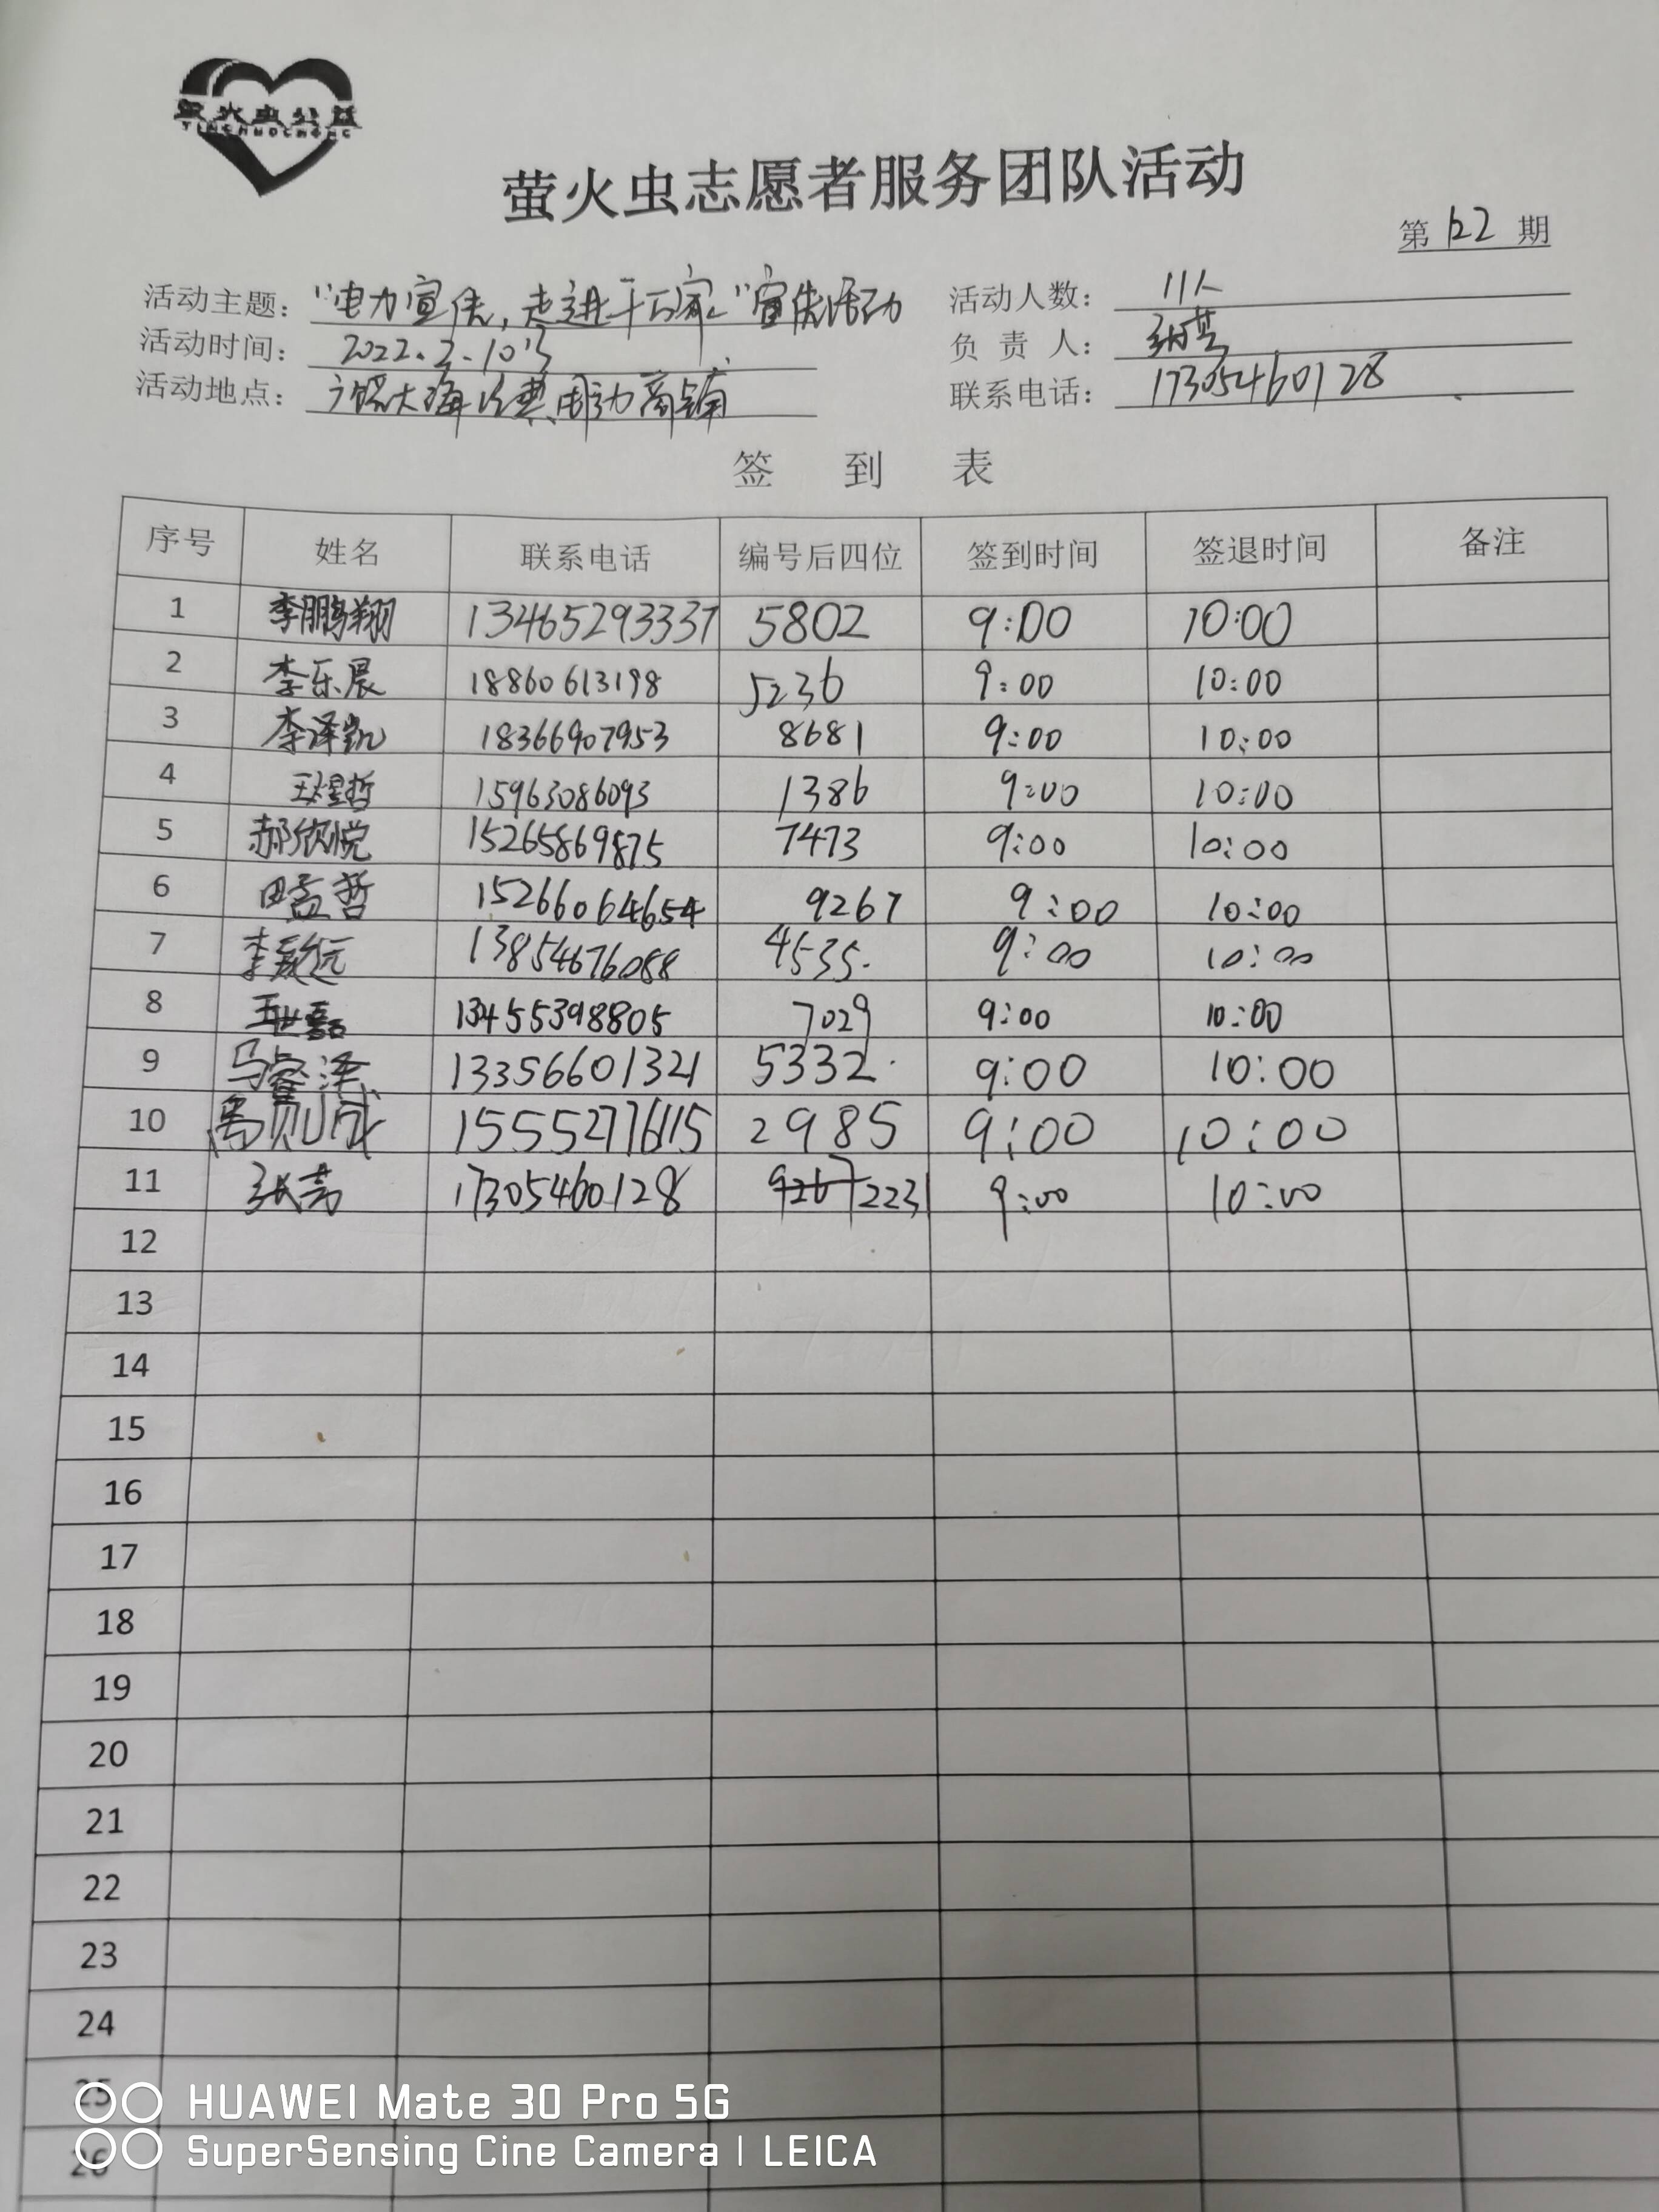 萤火虫公益
YINGHUOCHONG
萤火虫志愿者服务团队活动
第 122 期
活动主题： “电力宣传，走进千万家”宣传活动 活动人数： 11人
活动时间： 2022.2.10号 负责人：
活动地点： 大海 商铺 联系电话： 17305460128
签到表
序号 姓名 联系电话 编号后四位 签到时间 签退时间 备注
1 李鹏翔 13465293337 5802 9:00 10:00
2 李乐晨 18860613198 5236 9:00 10:00
3 李泽凯 18366907953 8681 9:00 10:00
4 王煜哲 15963086093 1386 9:00 10:00
5 郝欣悦 15265869875 7473 9:00 10:00
6 田孟哲 15266064654 9267 9:00 10:00
7 李 远 13854676088 4535. 9:00 10:00
8 王世 13455398805 7029 9:00 10:00
9 马睿泽 13356601321 5332. 9:00 10:00
10 则成 15552776115 2985 9:00 10:00
11 张 17305460128 9267 2231 9:00 10:00
12
13
14
15
16
17
18
19
20
21
22
23
24
25
26
HUAWEI Mate 30 Pro 5G
SuperSensing Cine Camera | LEICA